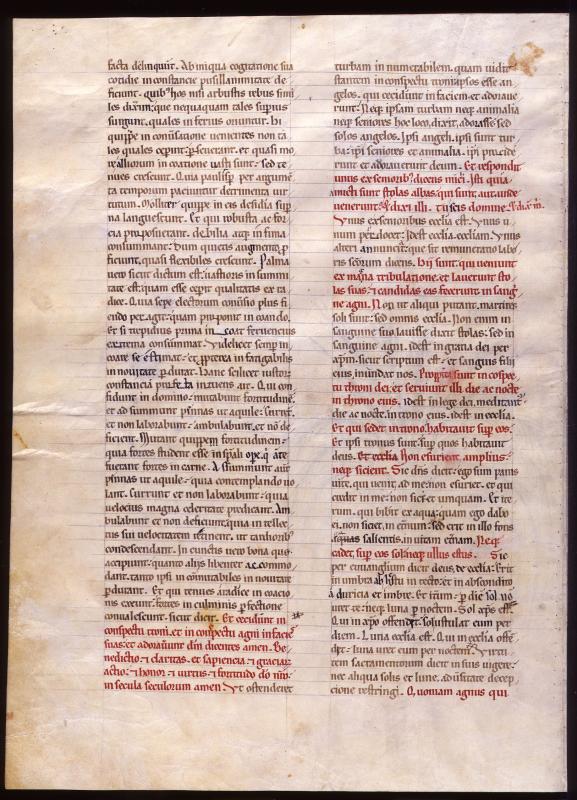 facta delinquunt. Ab iniqua cogitatione sua
cotidie in constancie pusillanimitate de
ficiunt. Quibus hos nisi arbustis rebus simi
les dixim; que nequaquam tales superius
surgunt, quales in ferius oriuntur. Hi
quippe in conuersatione uenientes non ta
les quales cepunt perseuerant. et quasi mo
re alliorum in coatione uasti sunt; sed te
nues crescunt. Quia paulisper per augume
ta temporum paciuntur detrimenta uir
tutum. Molliter quippe in eis desidia super
na languescunt. Et qui robusta ac for
cia proposuerant. debilia atque in fima
consummant; dum quietis augmento pro
ficiunt, quasi flexibiles crescunt. Palma
uero sicut dictum est; uastioris in summi
tate est; quam esse cepit qualitatis ex ra
dice. Quia sepe electorum conuersio plus fi
endo per agit; quam proponit in coando.
Et si trepidius prima in coat feruencius
extrema consummat. Videlicet semper in
coare se estimat; et propterea in fatigabilis
in nouitate perdurat. Hanc scilicet iustorum
constanciam propheta intuens ait. Qui con
fidunt in domino; mutabunt fortitudinem.
et ad summunt pennas ut aquile; current
et non laborabunt; ambulabunt, et non de
ficient. Mutant quippe fortitudinem;
quia fortes student esse in spirituali opere. qui ante
fuerant fortes in carne. Assummunt aut
pennas ut aquile; quia contemplando uo
lant. Currunt et non laborabunt; quia
uelocius magna celeritate predicant. Am
bulabunt et non deficiunt. quia in tellec
tus sui uelocitatem retinent, ut tardiorib
condescendant. In cunctis uero bona que
accipiunt; quanto alijs libenter ac commo
dant, tanto ipsi in comutabiles in nouitate
perdurant. Et qui tenues a radice in coacio
nis exeunt; fortes in culminis perfectione
conualescunt. sicut dicit. Et ceciderunt in
conspectu troni. et in conspectu agni in facies
suas; et adorauerunt dm dicentes amen. Be
nedictio; ⁊ claritas. et sapiencia; ⁊ graciar
actio; ⁊ honor. ⁊ uirtus; ⁊ fortitudo do nro
in secula seculorum amen. Vt ostenderet
turbam in numerabilem. quam uidit
stantem in conspectu troni ipsos esse an
gelos. qui ceciderunt in faciem et adoraue
runt. Neque ipsam turbam neque animalia
neque seniores hoc loco, dixit, adorasse sed
solos angelos. Ipsi angeli. ipsi sunt tur
ba; ipsi seniores et animalia. ipsi procide
runt et adorauerunt deum. Et respondit
unus ex senioribus. dicens michi. Isti quia
amicti sunt stolas albas. qui sunt, aut unde
uenerunt; Et dixi illi. tu scis domine. Et dixit m.
Vnus ex senioribus ecclia est. Vnus u
num per docet; idest ecclia. eccliam. Vnus
alteri annunciat; que sit remuneratio labo
ris scorum dicens. Hij sunt, qui uenerunt
ex magna tribulatione. et lauerunt sto
las suas; ⁊ candidas eas fecerunt in sangui
ne agni. Non ut aliqui putant, martires
soli sunt; sed omnis ecclia. Non enim in
sanguine suo, lauisse dixit stolas; sed in
sanguine agni. idest in gratia dei per
xpm. sicut scriptum est; et sanguis filii
eius, inundat nos. Propterea sunt in conspec
tu throni dei; et seruiunt illi die ac nocte
in throno eius. idest in lege dei, meditantur
die ac nocte, in trono eius. idest in ecclia.
Et qui sedet in trono. habitauit super eos.
Et ipsi tronus sunt. super quos habitauit
deus. Et ecclia Non esurient amplius.
neque sicient. Sic dns dicit; ego sum panis
uite, qui uenit ad me; non esuriet. et qui
credit in me; non siciet umquam. Et ite
rum. qui bibit ex aqua; quam ego dabo
ei, non siciet, in eternum; sed erit in illo fons
aquas salientis, in uitam eternam. Neque
cadet, super eos sol; neque ullus estus. Sic
per euuangelium dicit deus, de ecclia. Erit
in umbra ab estu in tecto; et in abscondito
a duricia et imbre. Et iterum; per diem sol no
uret te; neque luna per noctem. Sol xps est.
Qui in xpo offendit; sol ustulat eum per
diem. Luna ecclia est. Qui in ecclia offen
dit; luna uret eum per noctem. Virtu
tem sacramentorum dicit in suis uigere;
nec aliqua solis et lune, aduersitate decep
cione restringi. Quoniam agnus qui